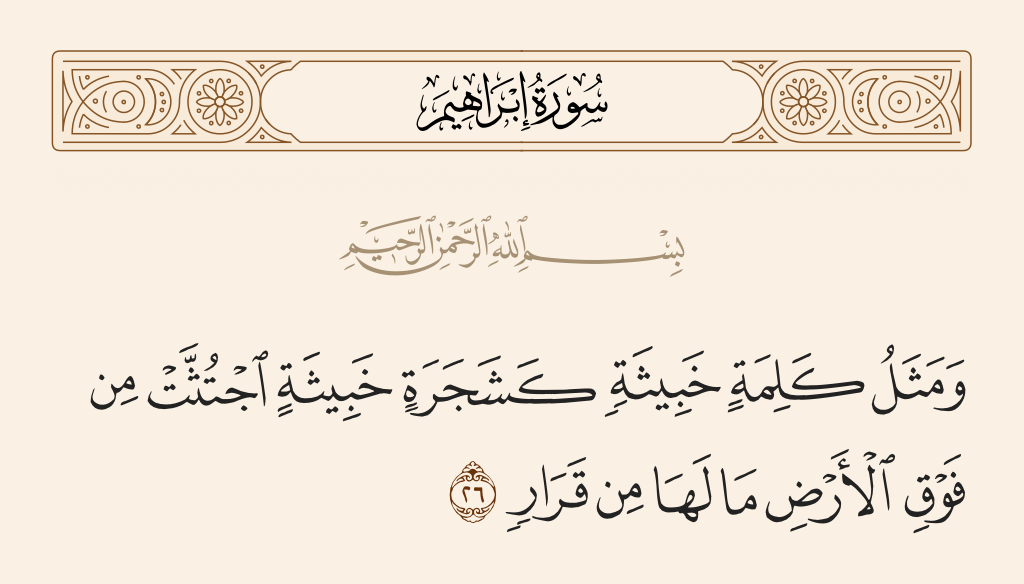 سُورَةُ إِبْرَاهِيمَ
بِسْمِ ٱللَّهِ ٱلرَّحْمَٰنِ ٱلرَّحِيمِ
وَمَثَلُ كَلِمَةٍ خَبِيثَةٍ كَشَجَرَةٍ خَبِيثَةٍ ٱجْتُثَّتْ مِن
فَوْقِ ٱلْأَرْضِ مَا لَهَا مِن قَرَارٍ ٢٦